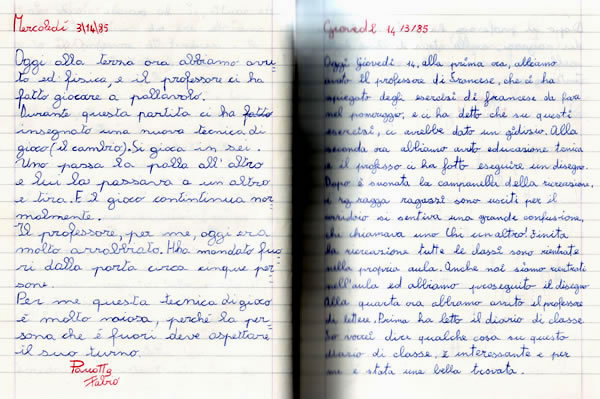 Mercoledí 3\14\85
Oggi alla terza ora abbiamo avu-
to ed. fisica, e il professore ci ha
fatto giocare a pallavolo.
Durante questa partita ci ha fatto
insegnato una nuova tecnica di
gioco (il cambio). Si gioca in sei.
Uno passa la palla all'altro
e lui la passava a un altro
e tira. E il gioco contintinua nor-
malmente.
Il professore, per me, oggi era
molto arrabbiato. Hha mandato fuo-
ri dalla porta circa cinque per-
sone.
Per me questa tecnica di gioco
è molto noiosa, perché la per-
sona che é fuori deve aspettare
il suo turno.
Fabio
Giovedí 14/3/85
Oggi Giovedí 14, alla prima ora, abbiamo
avuto il professore di francese, che ci ha
spiegato degli esercisi di francese da fare
nel pomeriggio, e ci ha detto che su questi
esercisi, ci avrebbe dato un giudisio. Alla
seconda ora abbiamo avuto educasione tenica
e il professo ci ha fatto eseguire un disegno.
Dopo è suonata la campanella della ricreasione.
ragazza ragassi sono usciti per il
corridoio si sentiva una grande confusione,
che chiamava uno chi un altro! Finita
la ricreasione tutte le classi sono rientrate
nella propria aula. Anche noi siamo rientrati
nell'aula ed abbiamo proseguito il disegno
Alla quarta ora abbiamo avuto il professore
de lettere. Prima ha letto il diario di classe.
Io vorrei dire qualche cosa su questo
diario di classe. È interessante e per
me è stata una bella trovata.